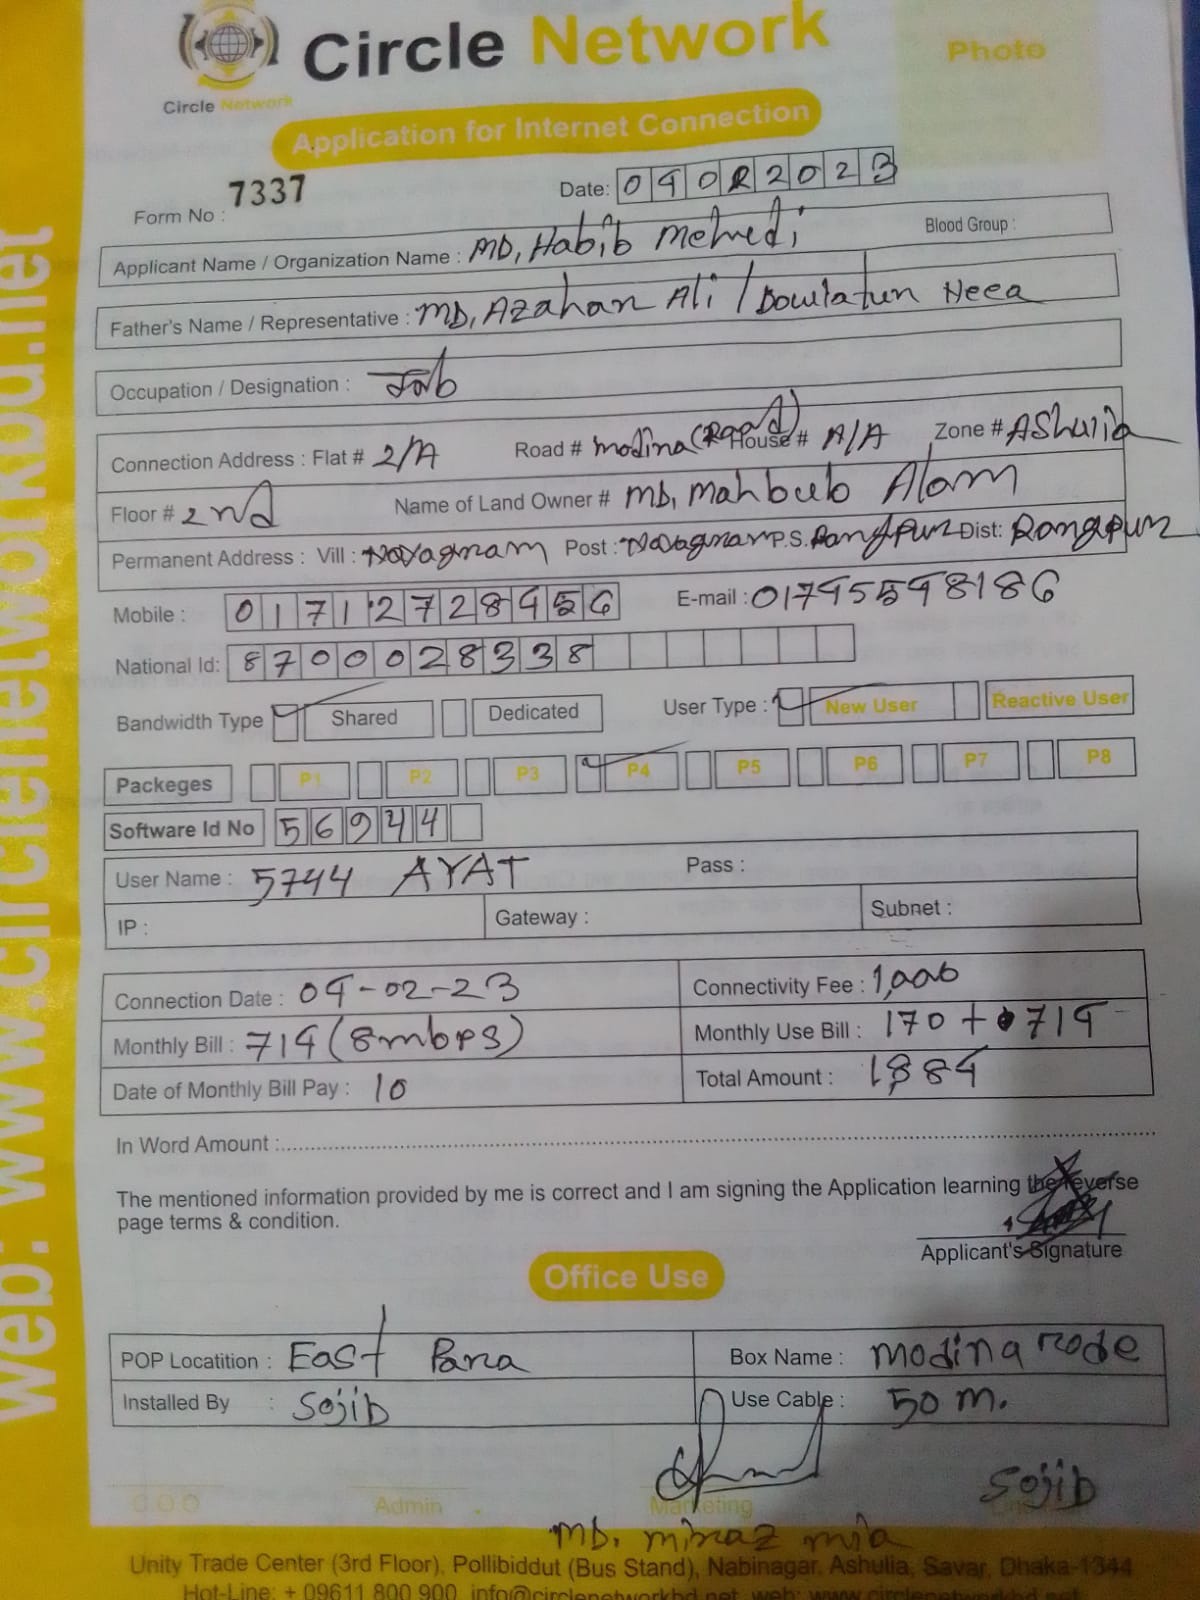 web: www.circlenetworkbd.net
Circle Network
Circle Network
Photo
Application for Internet Connection
Form No : 7337
Date: 04022023
Applicant Name / Organization Name : MD, Habib Mehedi
Blood Group :
Father's Name / Representative : MD, Azahan Ali / Dowlatun Neea
Occupation / Designation : Job
Connection Address : Flat # 2/A Road # modina (Road) House # A/A Zone # AShulia
Floor # 2nd Name of Land Owner # MD, Mahbub Alam
Permanent Address : Vill : Post : P.S. Rangpur Dist: Rangpur
Mobile : 01712728456 E-mail : 01745598186
National Id: 8700028338
Bandwidth Type Shared Dedicated User Type : New User Reactive User
Packeges P1 P2 P3 P4 P5 P6 P7 P8
Software Id No 56944
User Name : 5744 AYAT Pass :
IP : Gateway : Subnet :
Connection Date : 04-02-23 Connectivity Fee : 1,000
Monthly Bill : 714 (8mbps) Monthly Use Bill : 170 + 714
Date of Monthly Bill Pay : 10 Total Amount : 1884
In Word Amount :
The mentioned information provided by me is correct and I am signing the Application learning the reverse
page terms & condition.
Applicant's Signature
Office Use
POP Locatition : East Para Box Name : Modina rode
Installed By : Sojib Use Cable : 50 m.
Sojib
C O O Admin Marketing
MD. miraz mia
Unity Trade Center (3rd Floor), Pollibiddut (Bus Stand), Nabinagar, Ashulia, Savar, Dhaka-1344
Hot-Line: + 09611 800 900, info@circlenetworkbd.net, web: www.circlenetworkbd.net